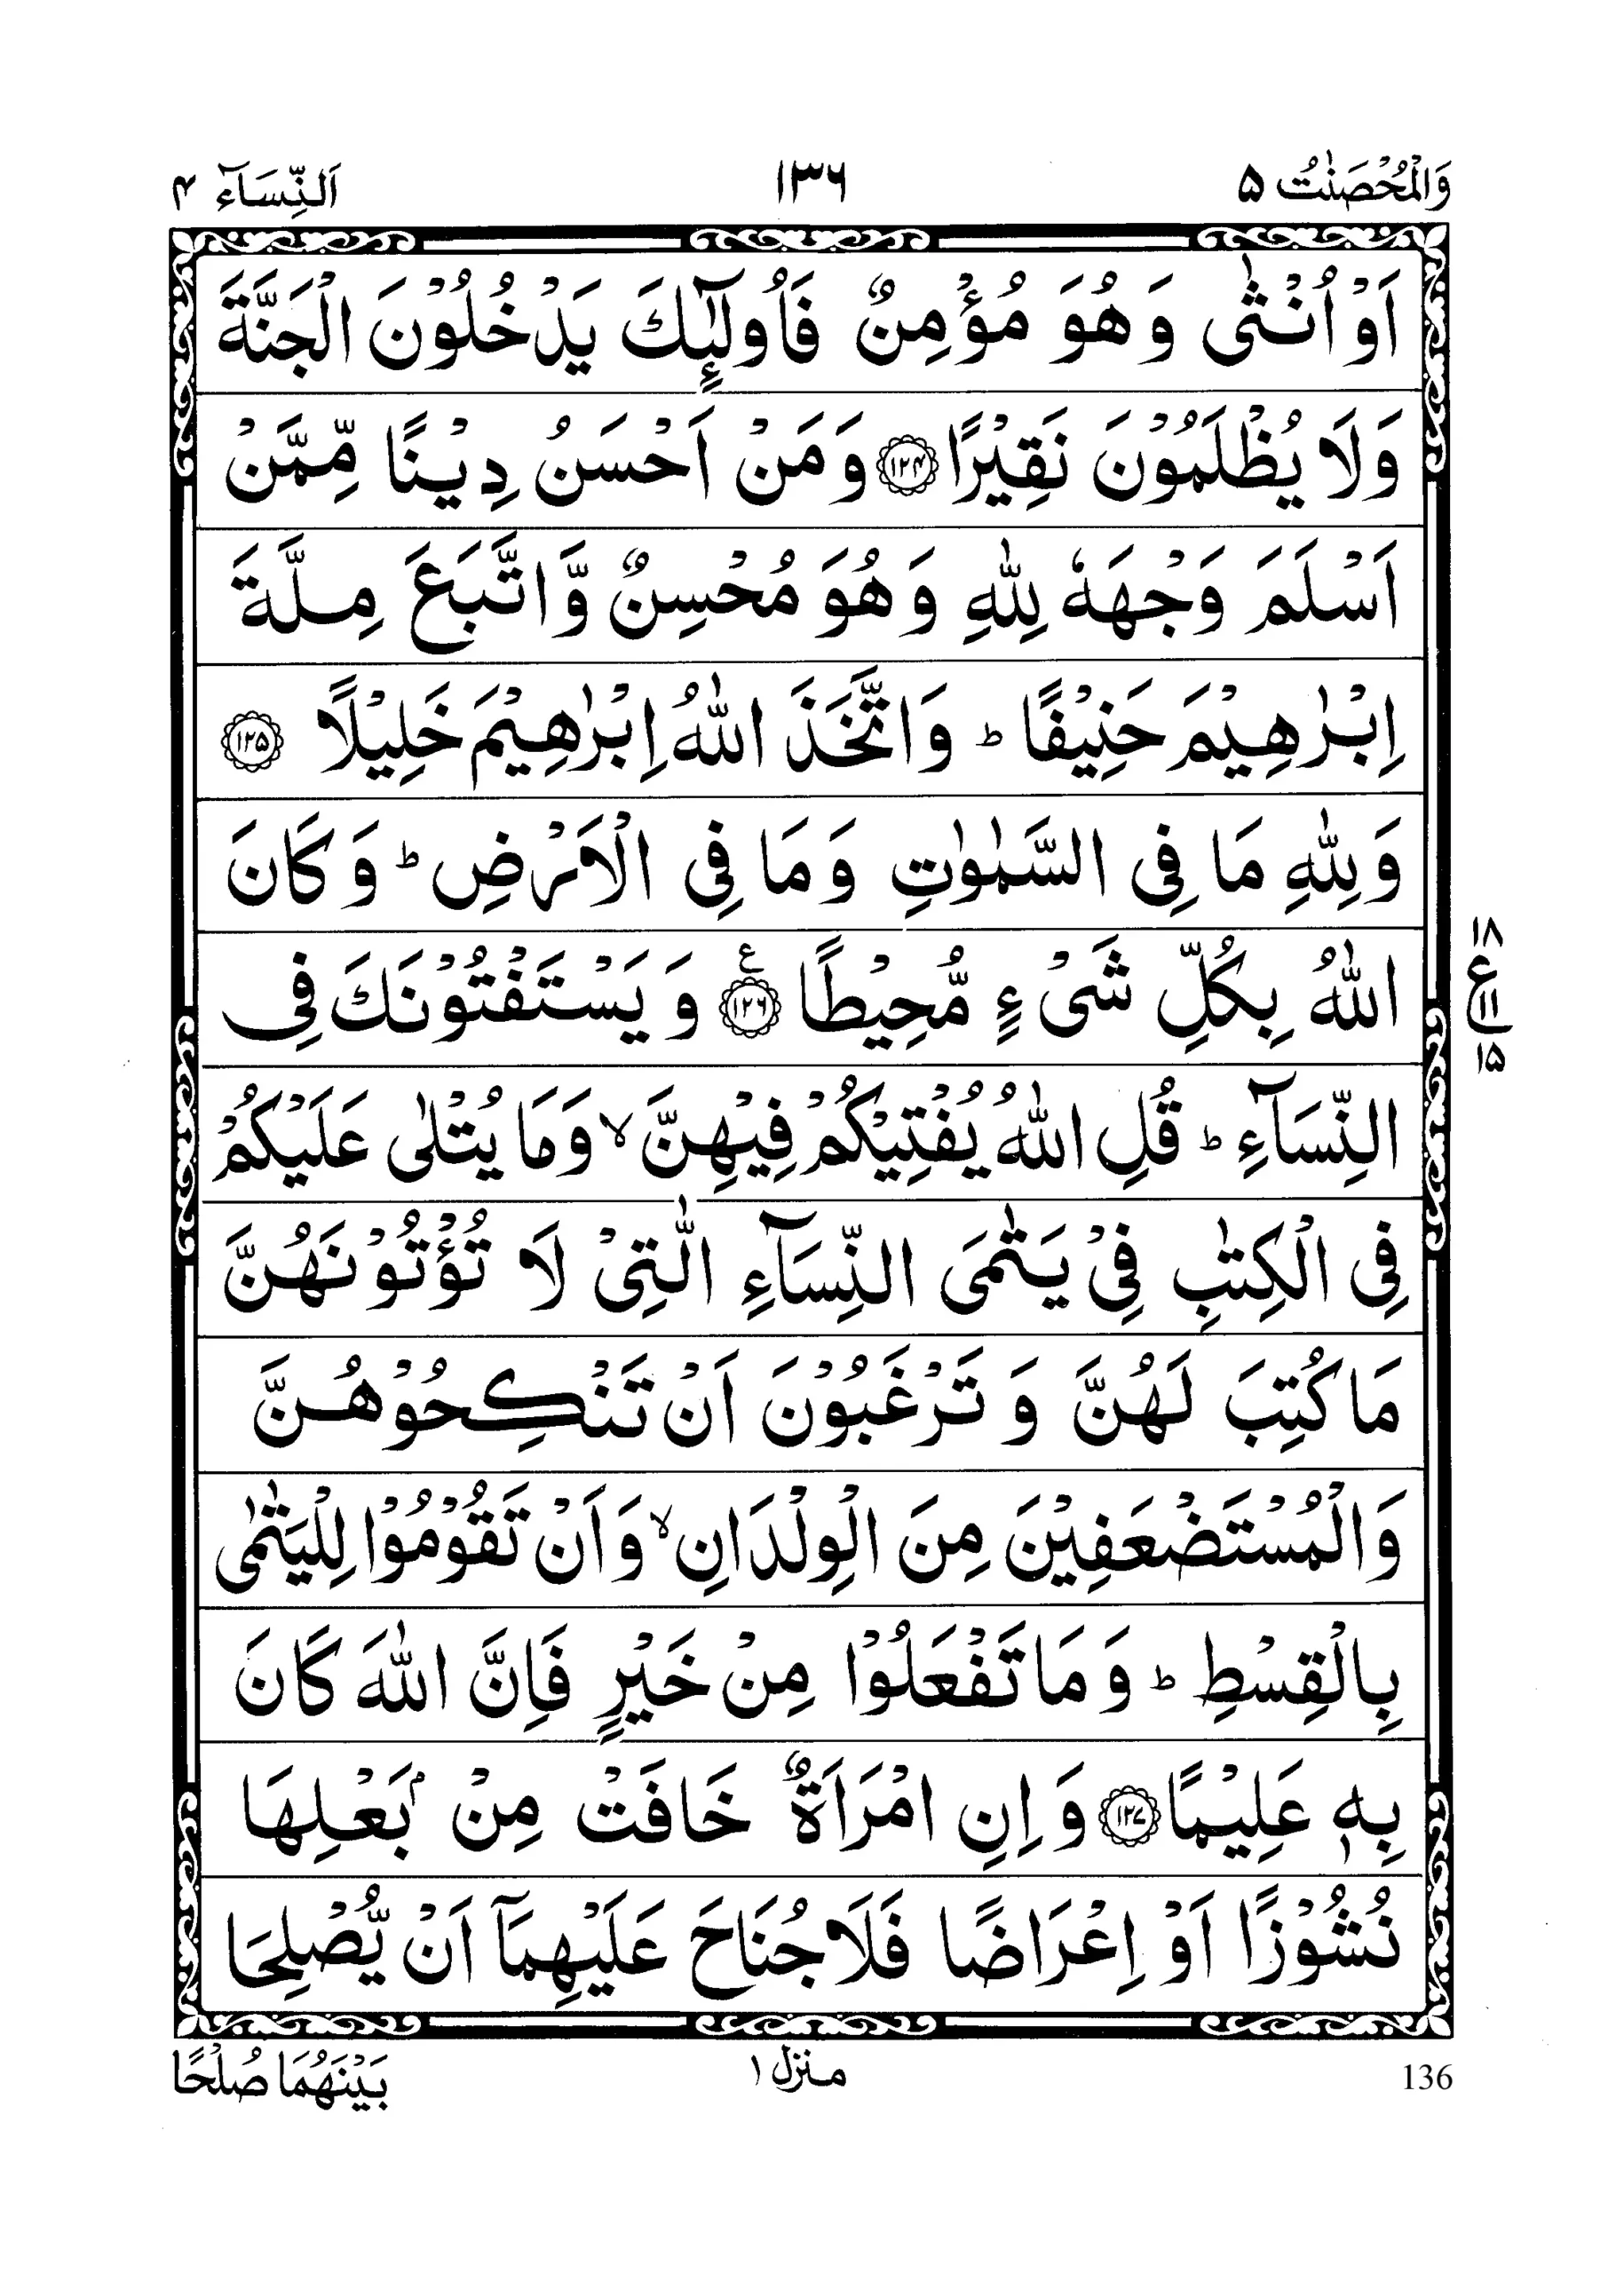 وَالْمُحْصَنٰتُ ۵ ۱۳۶ اَلنِّسَآء ۴
اَوْ اُنْثٰى وَهُوَ مُؤْمِنٌ فَاُولٰٓئِكَ يَدْخُلُوْنَ الْجَنَّةَ
وَلَا يُظْلَمُوْنَ نَقِيْرًا ۱۲۴ وَمَنْ اَحْسَنُ دِيْنًا مِّمَّنْ
اَسْلَمَ وَجْهَهٗ لِلّٰهِ وَهُوَ مُحْسِنٌ وَّاتَّبَعَ مِلَّةَ
اِبْرٰهِيْمَ حَنِيْفًا ؕ وَاتَّخَذَ اللّٰهُ اِبْرٰهِيْمَ خَلِيْلًا ۱۲۵
وَلِلّٰهِ مَا فِى السَّمٰوٰتِ وَمَا فِى الْاَرْضِ ؕ وَكَانَ
اللّٰهُ بِكُلِّ شَىْءٍ مُّحِيْطًا ۱۲۶ ع وَيَسْتَفْتُوْنَكَ فِى
۱۸ ع ۱۱ ۱۵
النِّسَآءِ ؕ قُلِ اللّٰهُ يُفْتِيْكُمْ فِيْهِنَّ ۙ وَمَا يُتْلٰى عَلَيْكُمْ
فِى الْكِتٰبِ فِىْ يَتٰمَى النِّسَآءِ الّٰتِىْ لَا تُؤْتُوْنَهُنَّ
مَا كُتِبَ لَهُنَّ وَتَرْغَبُوْنَ اَنْ تَنْكِحُوْهُنَّ
وَالْمُسْتَضْعَفِيْنَ مِنَ الْوِلْدَانِ ۙ وَاَنْ تَقُوْمُوْا لِلْيَتٰمٰى
بِالْقِسْطِ ؕ وَمَا تَفْعَلُوْا مِنْ خَيْرٍ فَاِنَّ اللّٰهَ كَانَ
بِهٖ عَلِيْمًا ۱۲۷ وَاِنِ امْرَاَةٌ خَافَتْ مِنْۢ بَعْلِهَا
نُشُوْزًا اَوْ اِعْرَاضًا فَلَا جُنَاحَ عَلَيْهِمَآ اَنْ يُّصْلِحَا
136 منزل ۱ بَيْنَهُمَا صُلْحًا